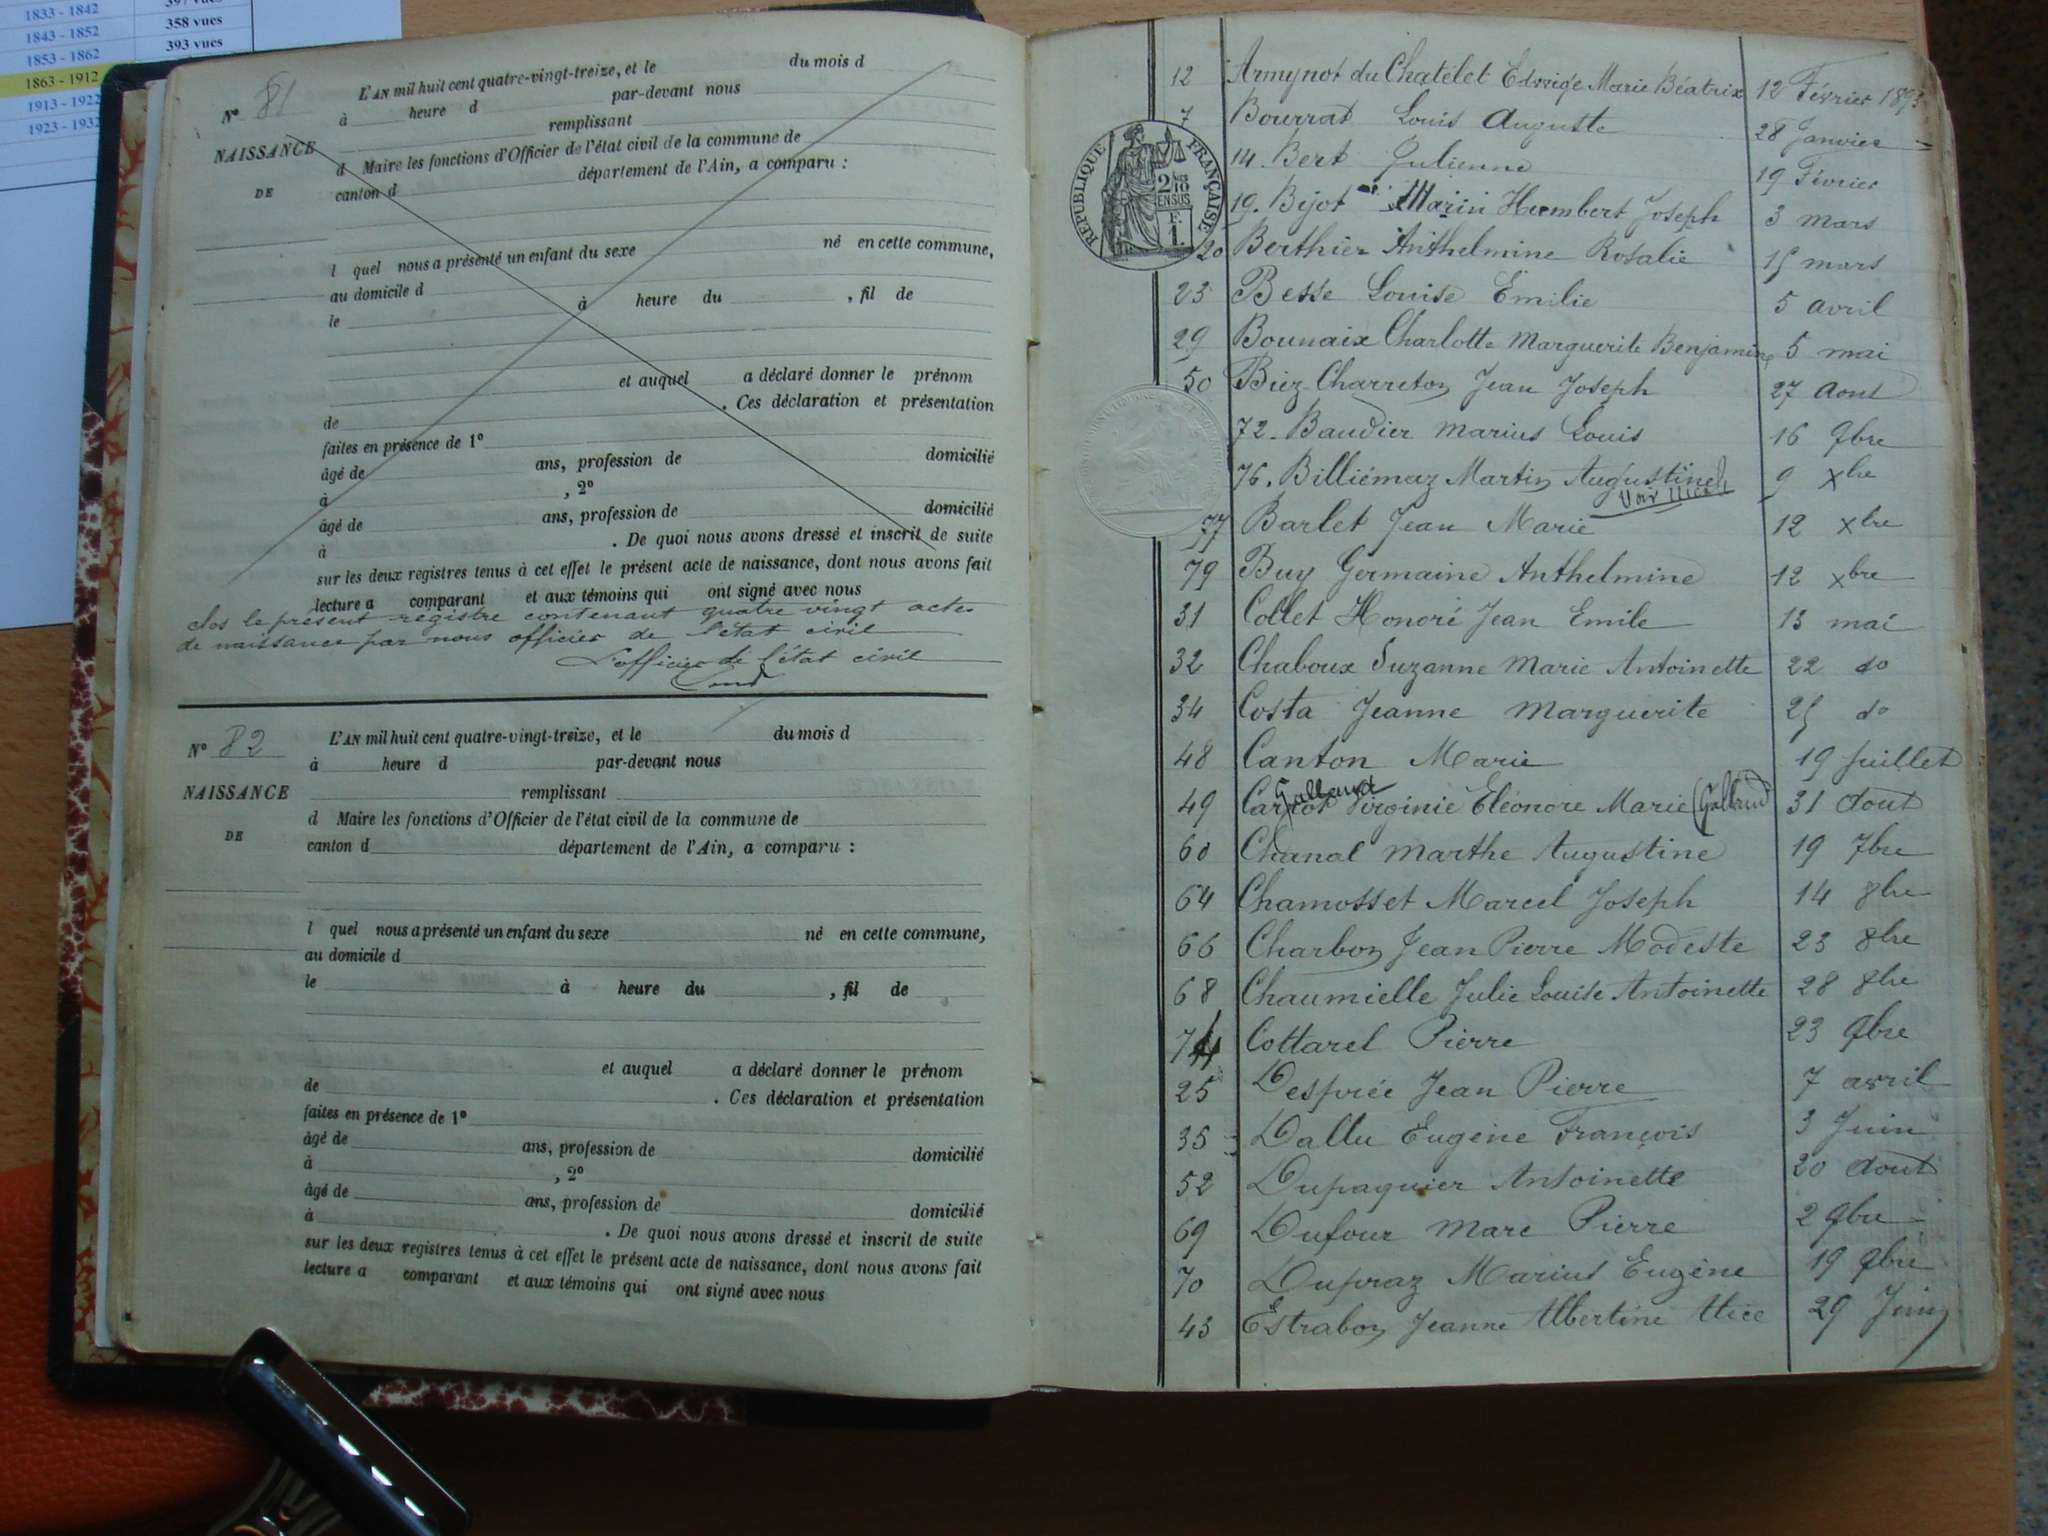 1833 - 1842
1843 - 1852 358 vues
1853 - 1862 393 vues
1863 - 1912
1913 - 1922
1923 - 1932
N° 81
NAISSANCE
DE
L'AN mil huit cent quatre-vingt-treize, et le du mois d
à heure d par-devant nous
remplissant
d Maire les fonctions d'Officier de l'état civil de la commune de
canton d département de l'Ain, a comparu :
l quel nous a présenté un enfant du sexe né en cette commune,
au domicile d
le à heure du , fil de
et auquel a déclaré donner le prénom
de . Ces déclaration et présentation
faites en présence de 1°
âgé de ans, profession de domicilié
à , 2°
âgé de ans, profession de domicilié
à . De quoi nous avons dressé et inscrit de suite
sur les deux registres tenus à cet effet le présent acte de naissance, dont nous avons fait
lecture a comparant et aux témoins qui ont signé avec nous
clos le présent registre contenant quatre vingt actes
de naissance par nous officier de l'état civil
L'officier de l'état civil
N° 82
NAISSANCE
DE
L'AN mil huit cent quatre-vingt-treize, et le du mois d
à heure d par-devant nous
remplissant
d Maire les fonctions d'Officier de l'état civil de la commune de
canton d département de l'Ain, a comparu :
l quel nous a présenté un enfant du sexe né en cette commune,
au domicile d
le à heure du , fil de
et auquel a déclaré donner le prénom
de . Ces déclaration et présentation
faites en présence de 1°
âgé de ans, profession de domicilié
à , 2°
âgé de ans, profession de domicilié
à . De quoi nous avons dressé et inscrit de suite
sur les deux registres tenus à cet effet le présent acte de naissance, dont nous avons fait
lecture a comparant et aux témoins qui ont signé avec nous
RÉPUBLIQUE FRANÇAISE
2/10
EN SUS
F.
1.
12 Armynot du Chatelet Edvvige Marie Béatrix 12 Février 1893
7 Bourrat Louis Auguste 28 Janvier
14. Bert Julienne 19 Février
19. Bijot Marin Humbert Joseph 3 mars
20 Berthier Anthelmine Rosalie 15 mars
23 Besse Louise Emilie 5 avril
29 Bounaix Charlotte Marguerite Benjamine 5 mai
50 Biez-Charreton Jean Joseph 27 Aout
72. Baudier Marius Louis 16 9bre
76. Billiémaz Martin Augustine 9 xbre
77 Barlet Jean Marie 12 xbre
79 Buy Germaine Anthelmine 12 xbre
31 Collet Honoré Jean Emile 13 mai
32 Chaboux Suzanne Marie Antoinette 22 do
34 Costa Jeanne Marguerite 25 do
48 Canton Marie 19 Juillet
Galland
49 Carrot Virginie Eléonore Marie (Galland) 31 Aout
60 Chanal Marthe Augustine 19 7bre
64 Chamosset Marcel Joseph 14 8bre
66 Charbon Jean Pierre Modeste 23 8bre
68 Chaumielle Julie Louise Antoinette 28 8bre
74 Cottarel Pierre 23 9bre
25 Desprée Jean Pierre 7 avril
35 Dallu Eugène François 3 Juin
52 Dupaquier Antoinette 20 Aout
69 Dufour Marc Pierre 2 9bre
70 Dupraz Marius Eugène 19 9bre
43 Estrabon Jeanne Albertine Alice 29 Juin